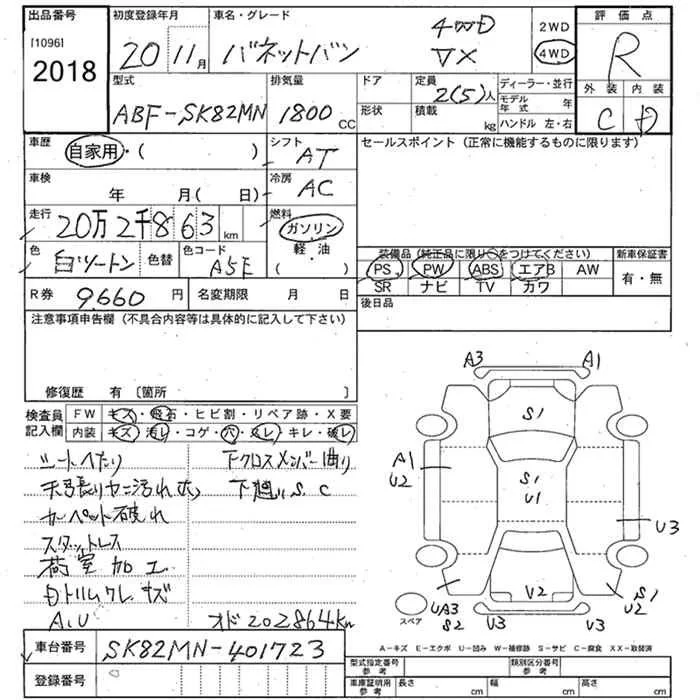 出品番号 初度登録年月 車名・グレード 評価点
[1096]
2018
20 11月 バネットバン 4WD VX 2WD 4WD R
型式 排気量 ドア 定員 ディーラー・並行 外装 内装
ABF-SK82MN 1800 CC 2(5)人 モデル年式 年 C D
形状 積載 kg ハンドル 左・右
車歴 自家用・( ) シフト AT セールスポイント(正常に機能するものに限ります)
車検 年 月( 日) 冷房 AC
走行 20万2千863 km 燃料 ガソリン・軽・油 ( )
色 白ツートン 色替 色コード A5E
装備品(純正品に限り○をつけてください) 新車保証書
PS PW ABS エアB AW 有・無
SR ナビ TV カワ
R券 9660円 名変期限 月 日 後日品
注意事項申告欄(不具合内容等は具体的に記入して下さい)
修復歴 有〔箇所 〕
検査員記入欄 FW キズ・飛石・ヒビ割・リペア跡・X要
内装 キズ・汚レ・コゲ・穴・ヌレ・キレ・破レ
シートへたり 下クロスメンバー曲り
天張りヤニ汚れ大 下廻りS.C
カーペット破れ
スタットレス
荷室加工
内トリムワレ キズ
A.U オド202864km
車台番号 SK82MN-401723
登録番号
A3 A1
S1
A1
U2
S1
U1
U3
V2
UA3
S2
V3 V3
S1
U2
スペア
A-キズ E-エクボ U-凹み W-補修跡 S-サビ C-腐食 XX-取替済
型式指定番号 参考 類別区分番号 参考
車庫証明用 参考 長さ cm 幅 cm 高さ cm